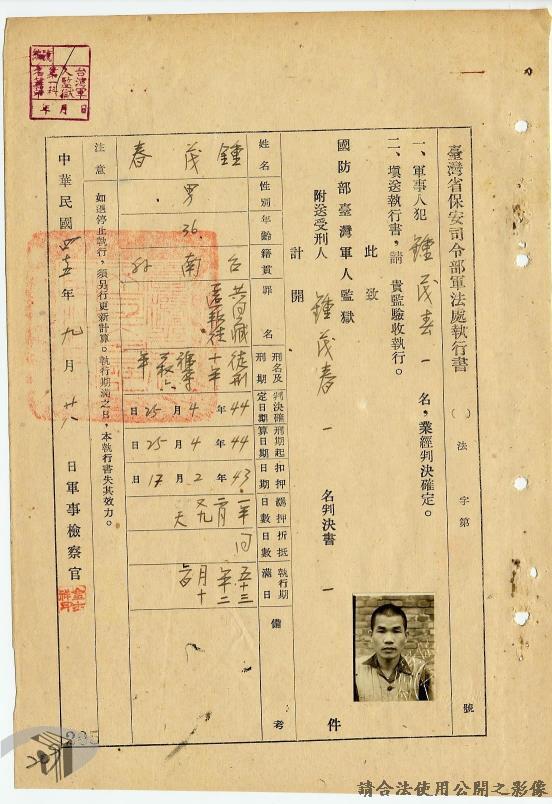 臺灣省保安司令部軍法處執行書
( ) 法 字第 號
一、軍事人犯 鍾茂春 一 名,業經判決確定。
二、填送執行書,請 貴監驗收執行。
此致
國防部臺灣軍人監獄
附送受刑人 鍾茂春 一 名判決書 一 件
計開
姓名 性別 年齡 籍貫 罪名 刑名及刑期 判決確定日期 刑期起算日期 扣押日期 羈押日數 折抵日數 執行期滿日 備考
鍾茂春 男 36 台南 徒刑十年 44年4月25日 44年4月25日 43年2月17日
注意 如遇停止執行,須另行更新計算。執行期滿之日,本執行書失其效力。
中華民國 四五 年 九 月 廿八 日 軍事檢察官
台灣軍人監獄
第一科
年 月 日
205
請合法使用公開之影像